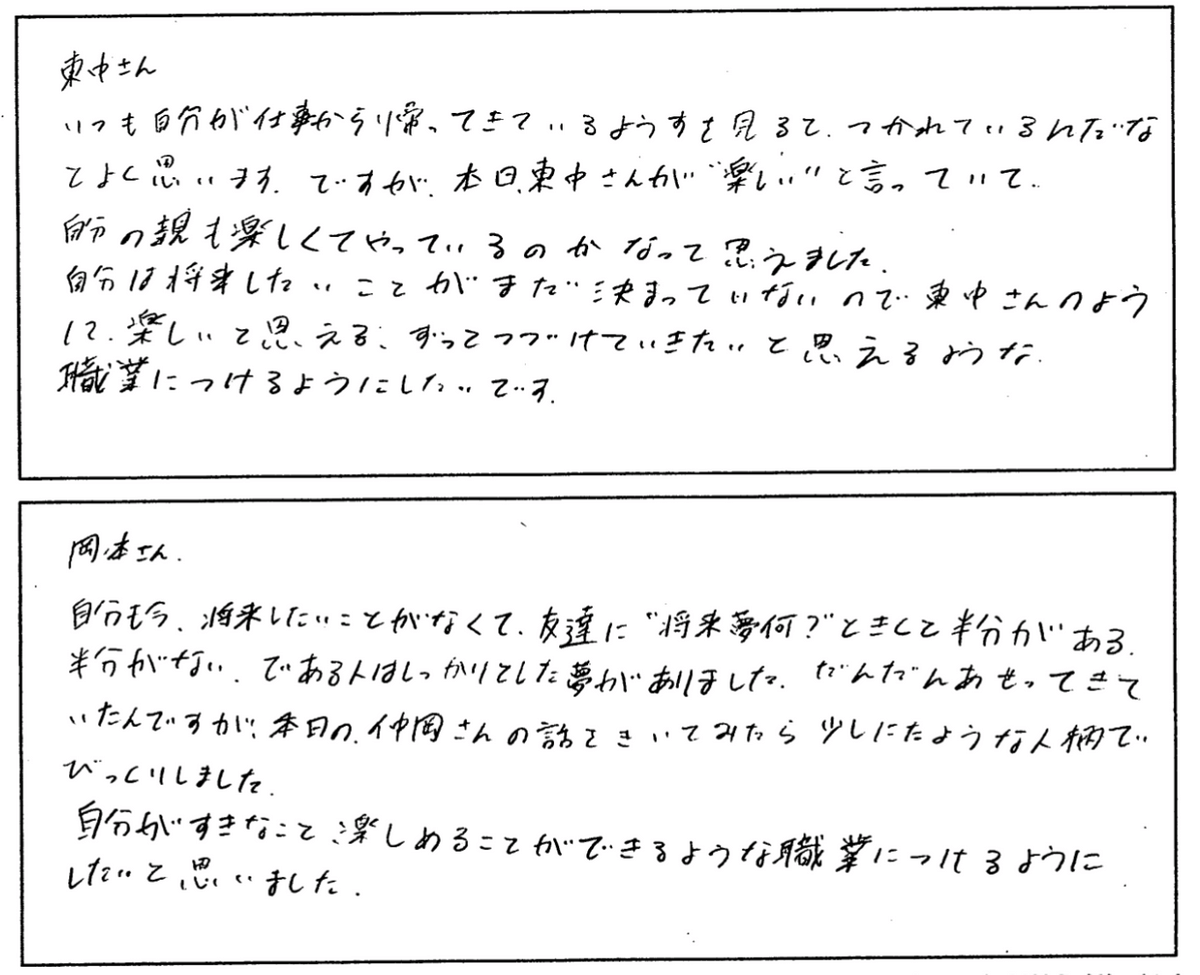 東中さん
いつも自分が仕事から帰ってきているようすを見るて、つかれているんだな
とよく思います。ですが、本日、東中さんが“楽しい”と言っていて、
自分の親も楽しくてやっているのかなって思えました。
自分は将来したいことがまだ決まっていないので東中さんのよう
に、楽しいと思える、ずっとつづけていきたいと思えるような、
職業につけるようにしたいです。
岡本さん.
自分も今、将来したいことがなくて、友達に“将来夢何?”ときくと半分がある、
半分がない、である人はしっかりとした夢がありました、だんだんあせってきて
いたんですが、本日の、仲岡さんの話をきいてみたら少しにたような人柄で
びっくりしました。
自分がすきなこと、楽しめることができるような職業につけるように
したいと思いました。